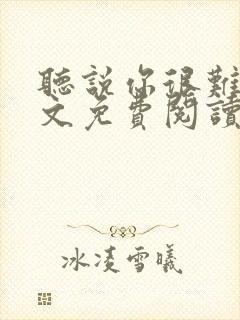 聽說你很難
文免費閱讀
冰凌雪曦